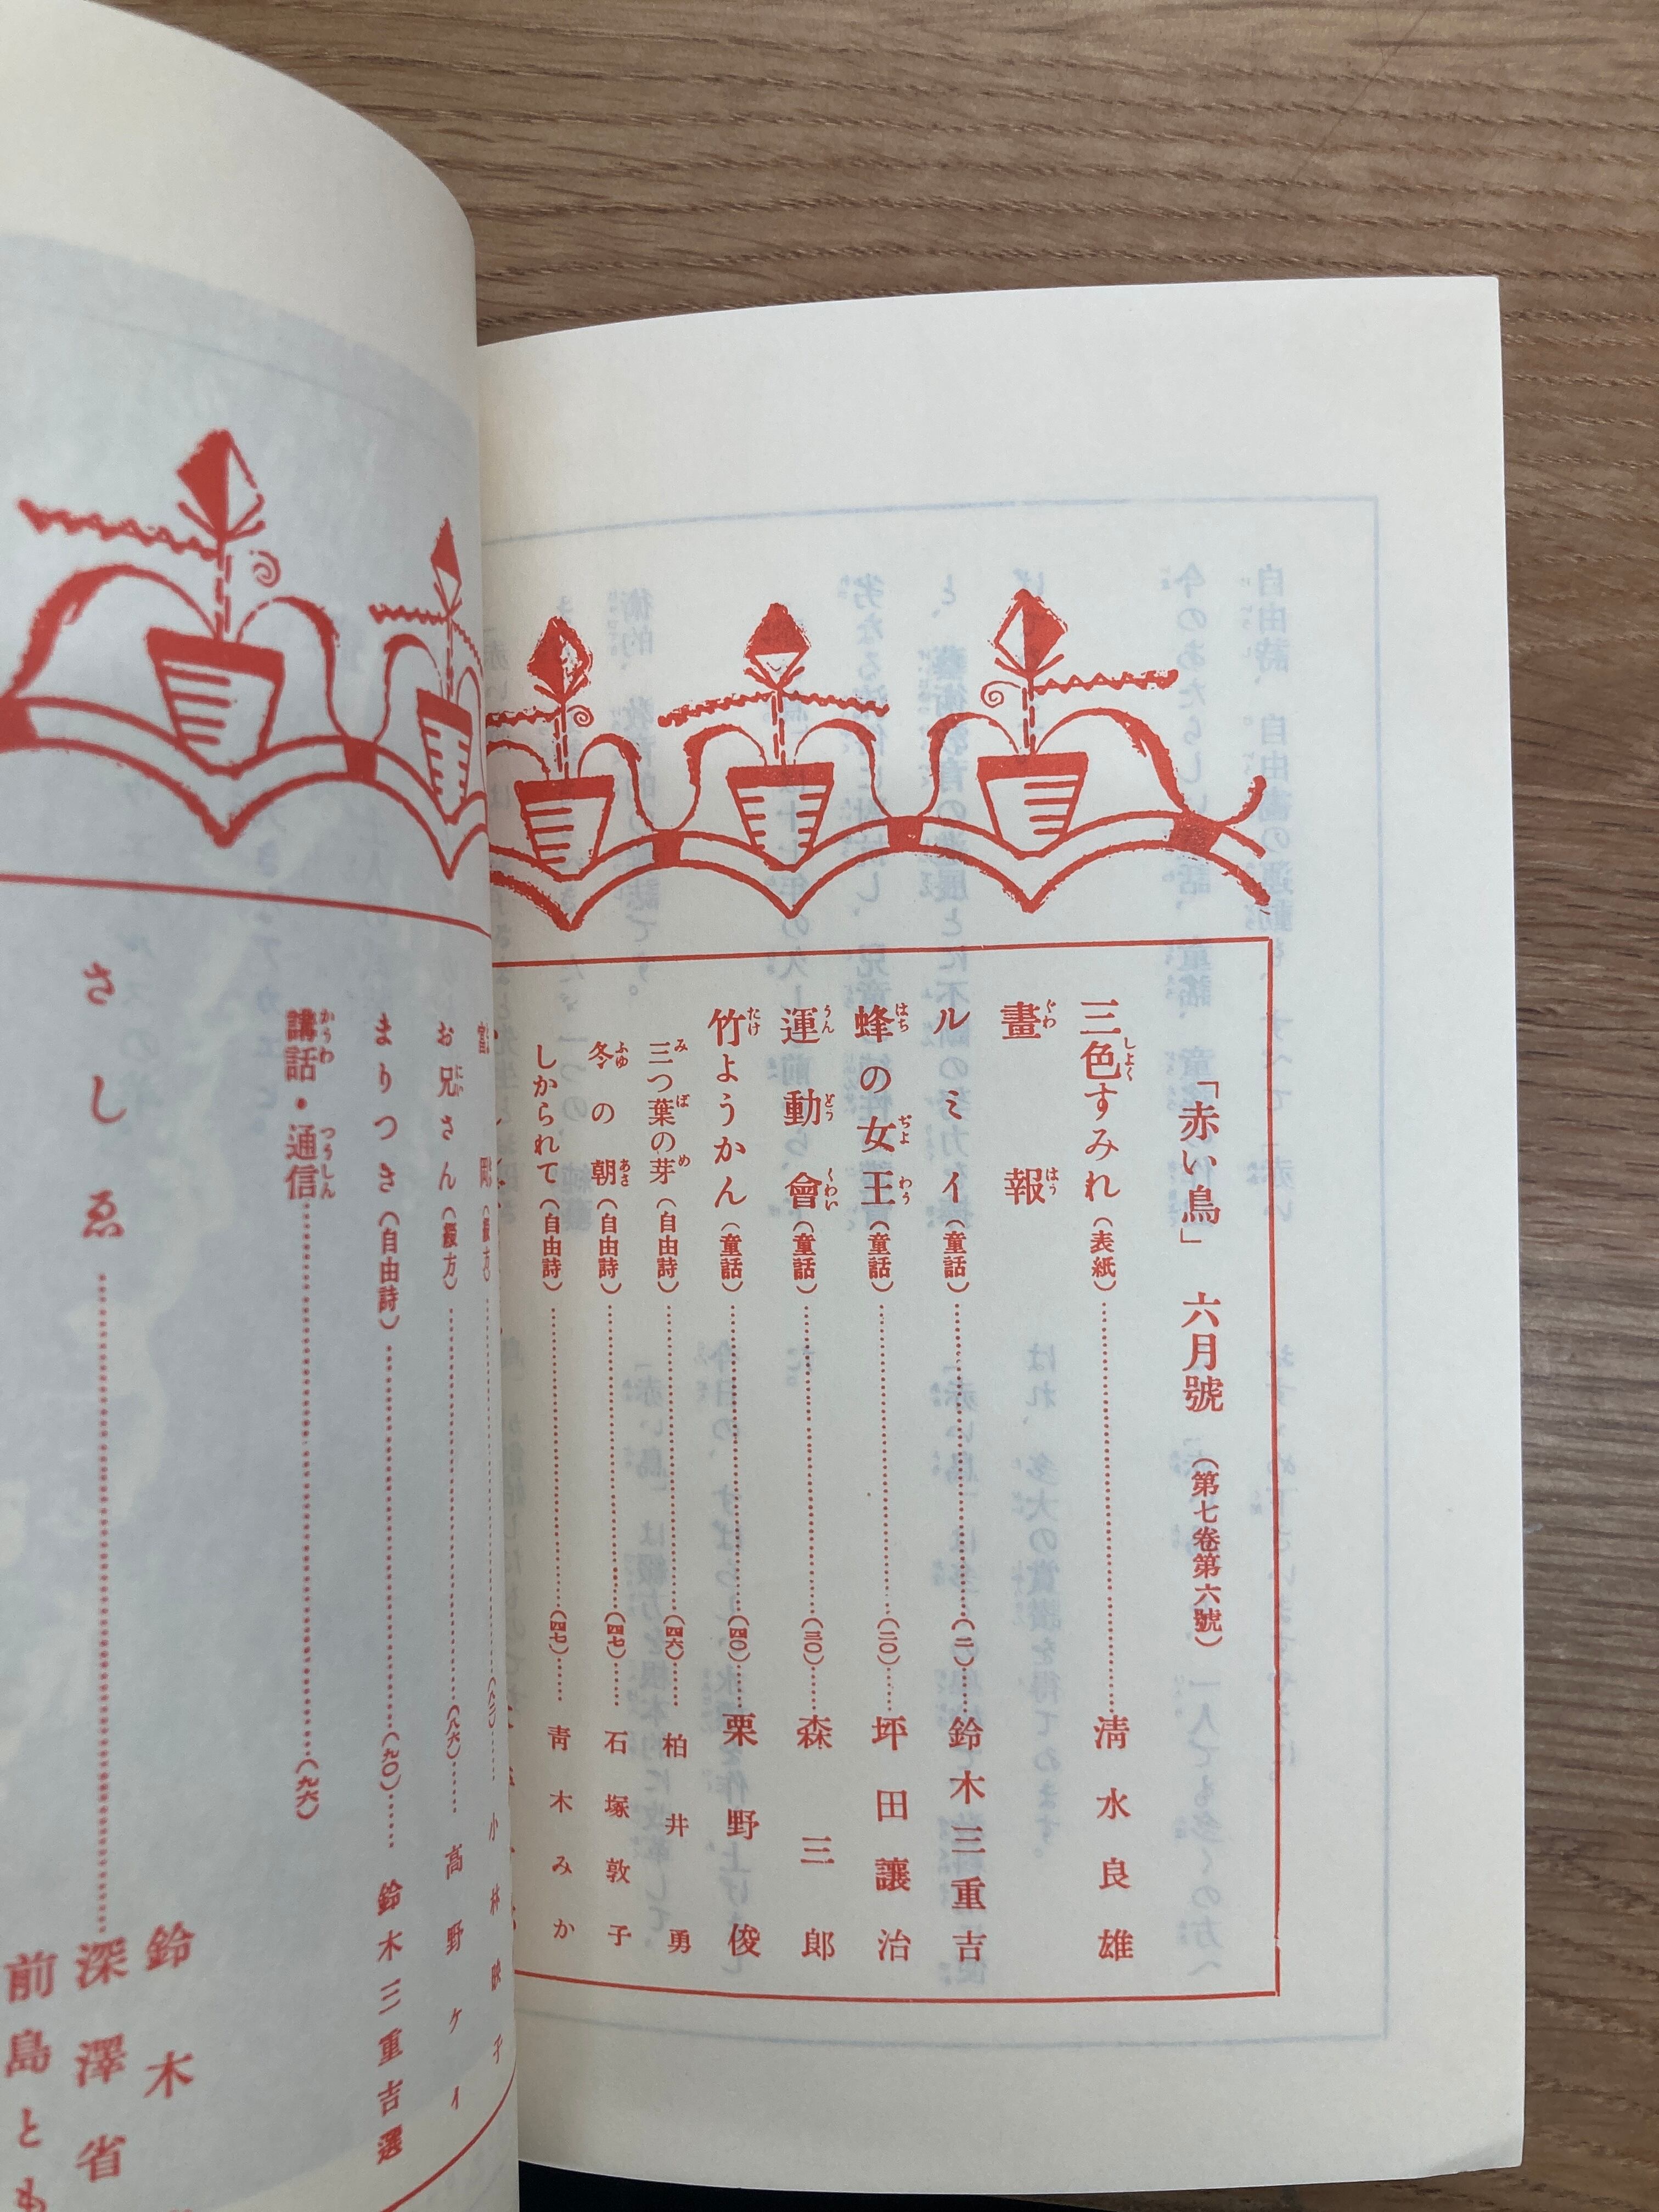 「赤い鳥」 六月號 (第七卷第六號)
三色すみれ(表紙)……清水良雄
畫報
ルミイ(童話)……(二)……鈴木三重吉
蜂の女王(童話)……(二〇)……坪田讓治
運動會(童話)……(三〇)……森三郎
竹ようかん(童話)……(四〇)……栗野俊
三つ葉の芽(自由詩)……(四六)……柏井勇
冬の朝(自由詩)……(四七)……石塚敦子
しかられて(自由詩)……(四七)……青木みか
お兄さん(綴方)……(八六)……高野ケイ
まりつき(自由詩)……(九〇)……鈴木三重吉選
講話・通信……(九六)
さしゑ……
鈴木
深澤省
前島とも